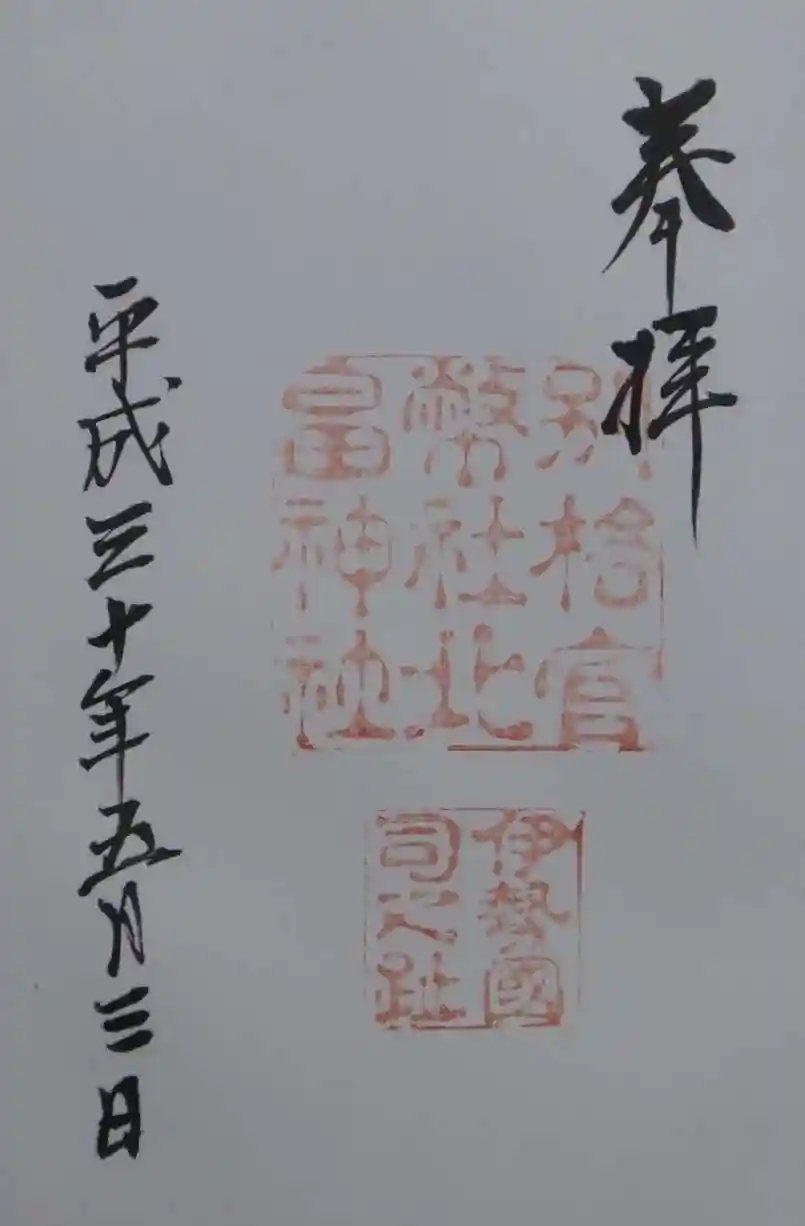 奉拝
別格官
幣社北
畠神社
伊勢國
司之趾
平成三十年五月三日